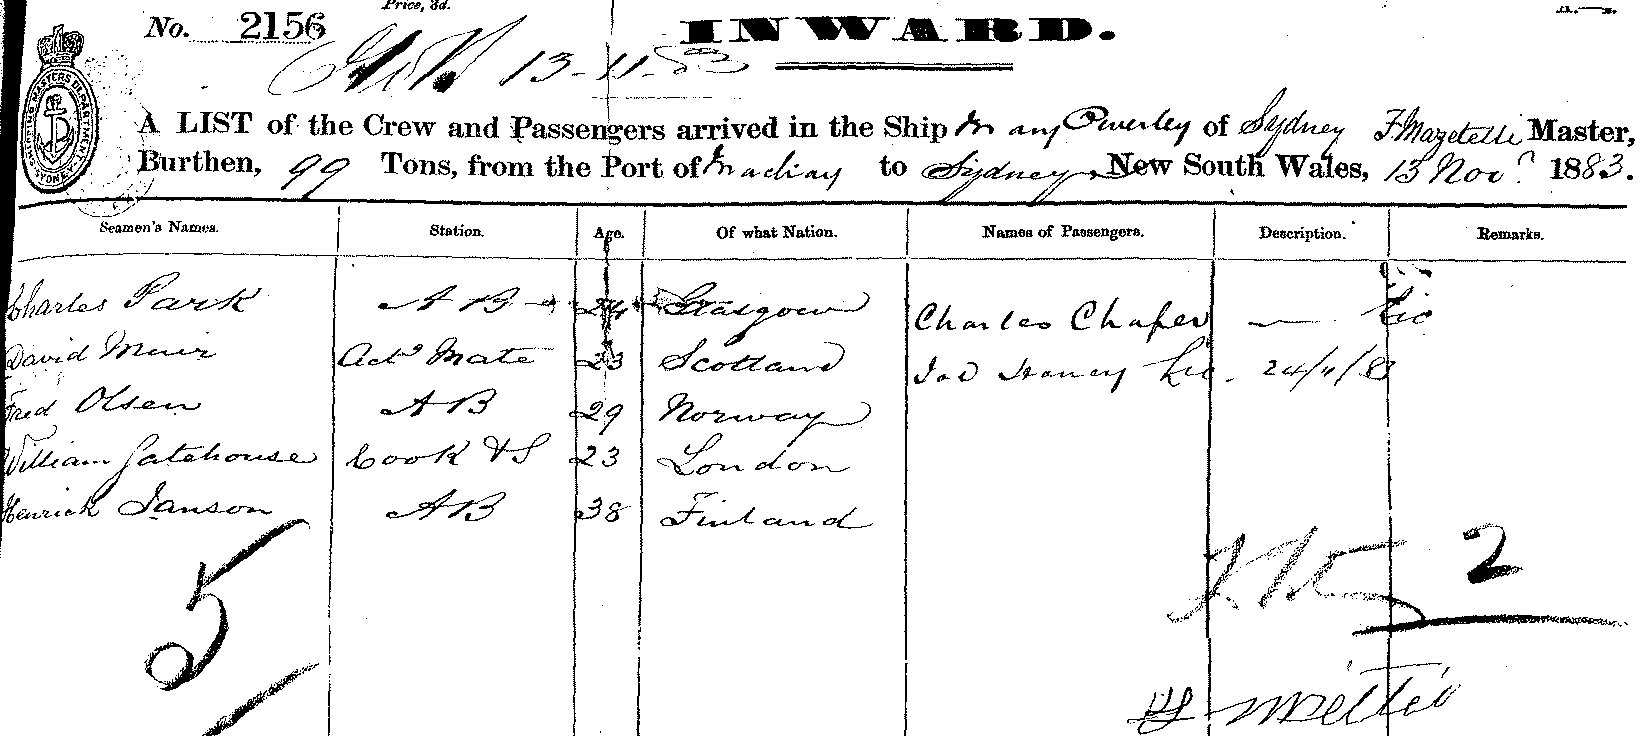 Price, 3d.
No. 2156
INWARD.
13-11-83
SHIPPING MASTERS DEPARTMENT SYDNEY
A LIST of the Crew and Passengers arrived in the Ship of Sydney F. Mazetelli Master,
Burthen, 99 Tons, from the Port of to Sydney, New South Wales, 13 Novr. 1883.
Seamen's Names. Station. Age. Of what Nation. Names of Passengers. Description. Remarks.
Charles Park A B 24 Glasgow Charles Chaper — Lic
David Muir Actg Mate 23 Scotland Lic. 24/11/83
Fred Olsen A B 29 Norway
William Gatehouse Cook & S 23 London
Henrick Janson A B 38 Finland
5
2